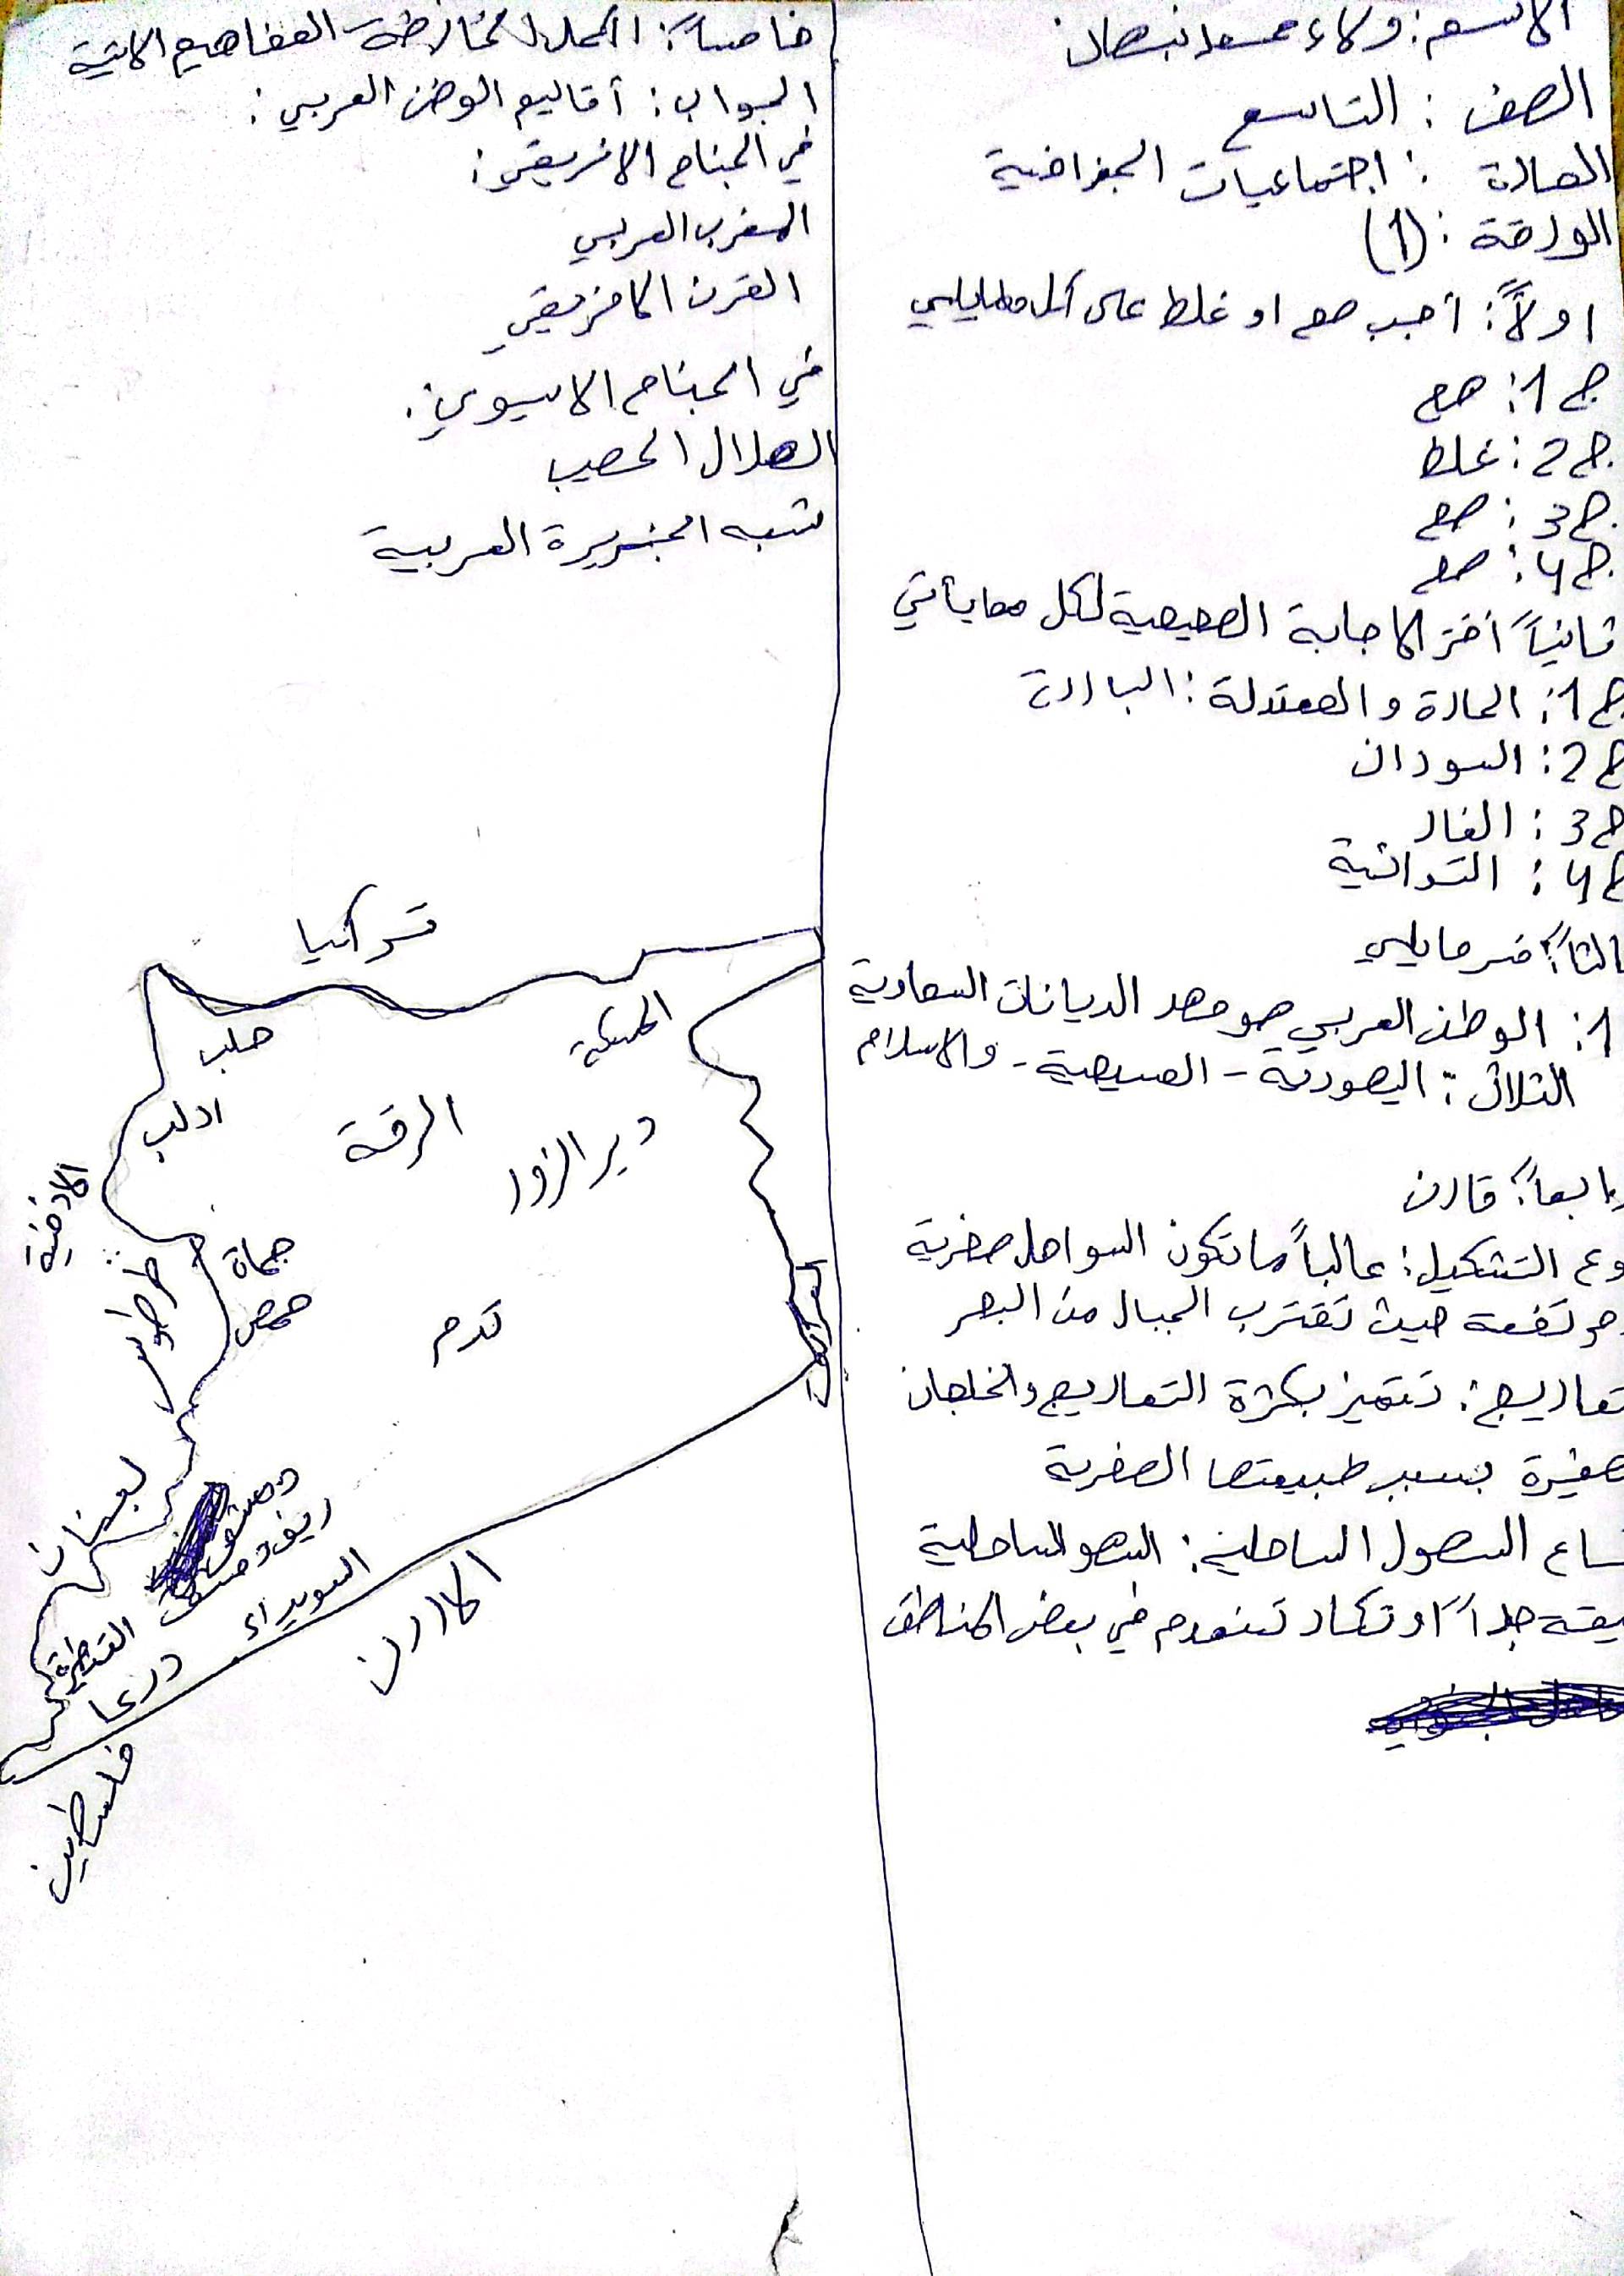 الاسم: ولاء محمد نبهان
الصف: التاسع
المادة: اجتماعيات الجغرافية
الورقة: (1)
اولاً: أجب صح او غلط على كل مما يلي
ج1: صح
ج2: غلط
ج3: صح
ج4: صح
ثانياً أختر الاجابة الصحيحة لكل مما يأتي
ج1: الحارة والمعتدلة: الباردة
ج2: السودان
ج3: الغاز
ج4: التراثية
الثاً: فسر ما يلي
1: الوطن العربي هو مهد الديانات السماوية
الثلاث: اليهودية - المسيحية - والاسلام
رابعاً: قارن
وع التشكيل: غالباً ما تكون السواحل صخرية
ومرتفعة حيث تقترب الجبال من البحر
تعاريج: تتميز بكثرة التعاريج والخلجان
صغيرة بسبب طبيعتها الصخرية
ساع السهول الساحلية: السهو الساحلية
يقة جداً او تكاد تنعدم في بعض المناطق
خامساً: اكمل خارطة المفاهيم الاتية
الجواب: أقاليم الوطن العربي:
في الجناح الافريقي:
المغرب العربي
القرن الافريقي
في الجناح الاسيوي:
الهلال الخصيب
شبه الجزيرة العربية
تركيا
حلب
الحسكة
ادلب
الرقة
دير الزور
الاذقية
حماة
طرطوس
حمص
تدمر
العراق
لبنان
دمشق
ريف دمشق
السويداء
القنيطرة
درعا
الاردن
فلسطين